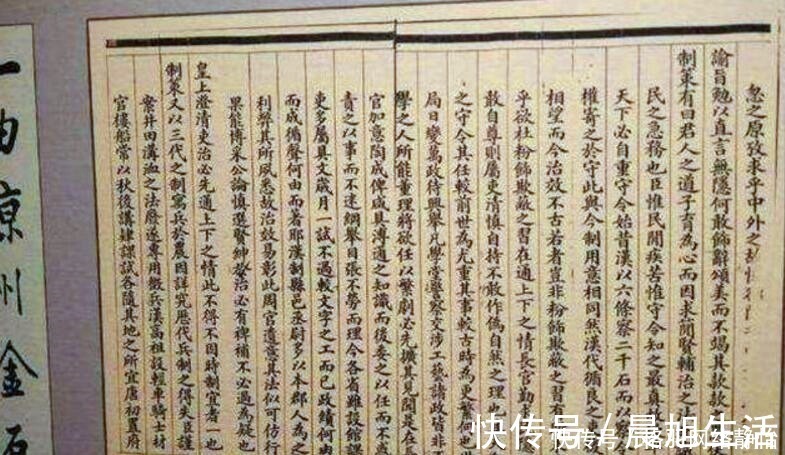 忽之原致求乎中外之故
諭旨勉以直言無隱何敢飾辭頌美而不竭其款款
制策有曰君人之道子育為心而因求聞賢輔治之
民之急務也臣惟民間疾苦惟守令知之最真
天下必自重守令始昔漢以六條察二千石而以察
權寄之於守此與今制用意相同然漢代循良之
相望而今治效不古若者豈非粉飾欺蔽之習
乎欲杜粉飾欺蔽之習在通上下之情長官勤
散自尊則屬吏清慎自持不敢作偽自然之理
之守令其任較前世為尤重其事較古時為更繁
局日變萬政待興舉凡學堂警察交涉工藝諸政皆非
學之人所能董理將欲任以繁劇必先擴其見聞是在
官加意陶成俾咸具溥通之知識而後委之以任而不
責之以事而不迷綱舉目張不勞而理今各省雖設館課
吏多屬具文歲月一試不過較文字之工而已政績何由
而成循聲何由而著耶漢制縣邑丞尉多以本郡人為之
利弊其所夙悉故治效易彰此周官遺意其法似可仿行
果能博采公論慎選賢紳於治必有裨補不必過為疑也
皇上澄清吏治必先通上下之情此不得不因時制宜者一也
制策又以三代之制寓兵於農因詳究歷代兵制之得失臣謹
案井田溝洫之法廢遂專用徵兵漢高祖設輕車騎士材
官樓船常以秋後講肄課試各隨其地之所宜唐初置府
一由涼州金
快传号/晨旭生活